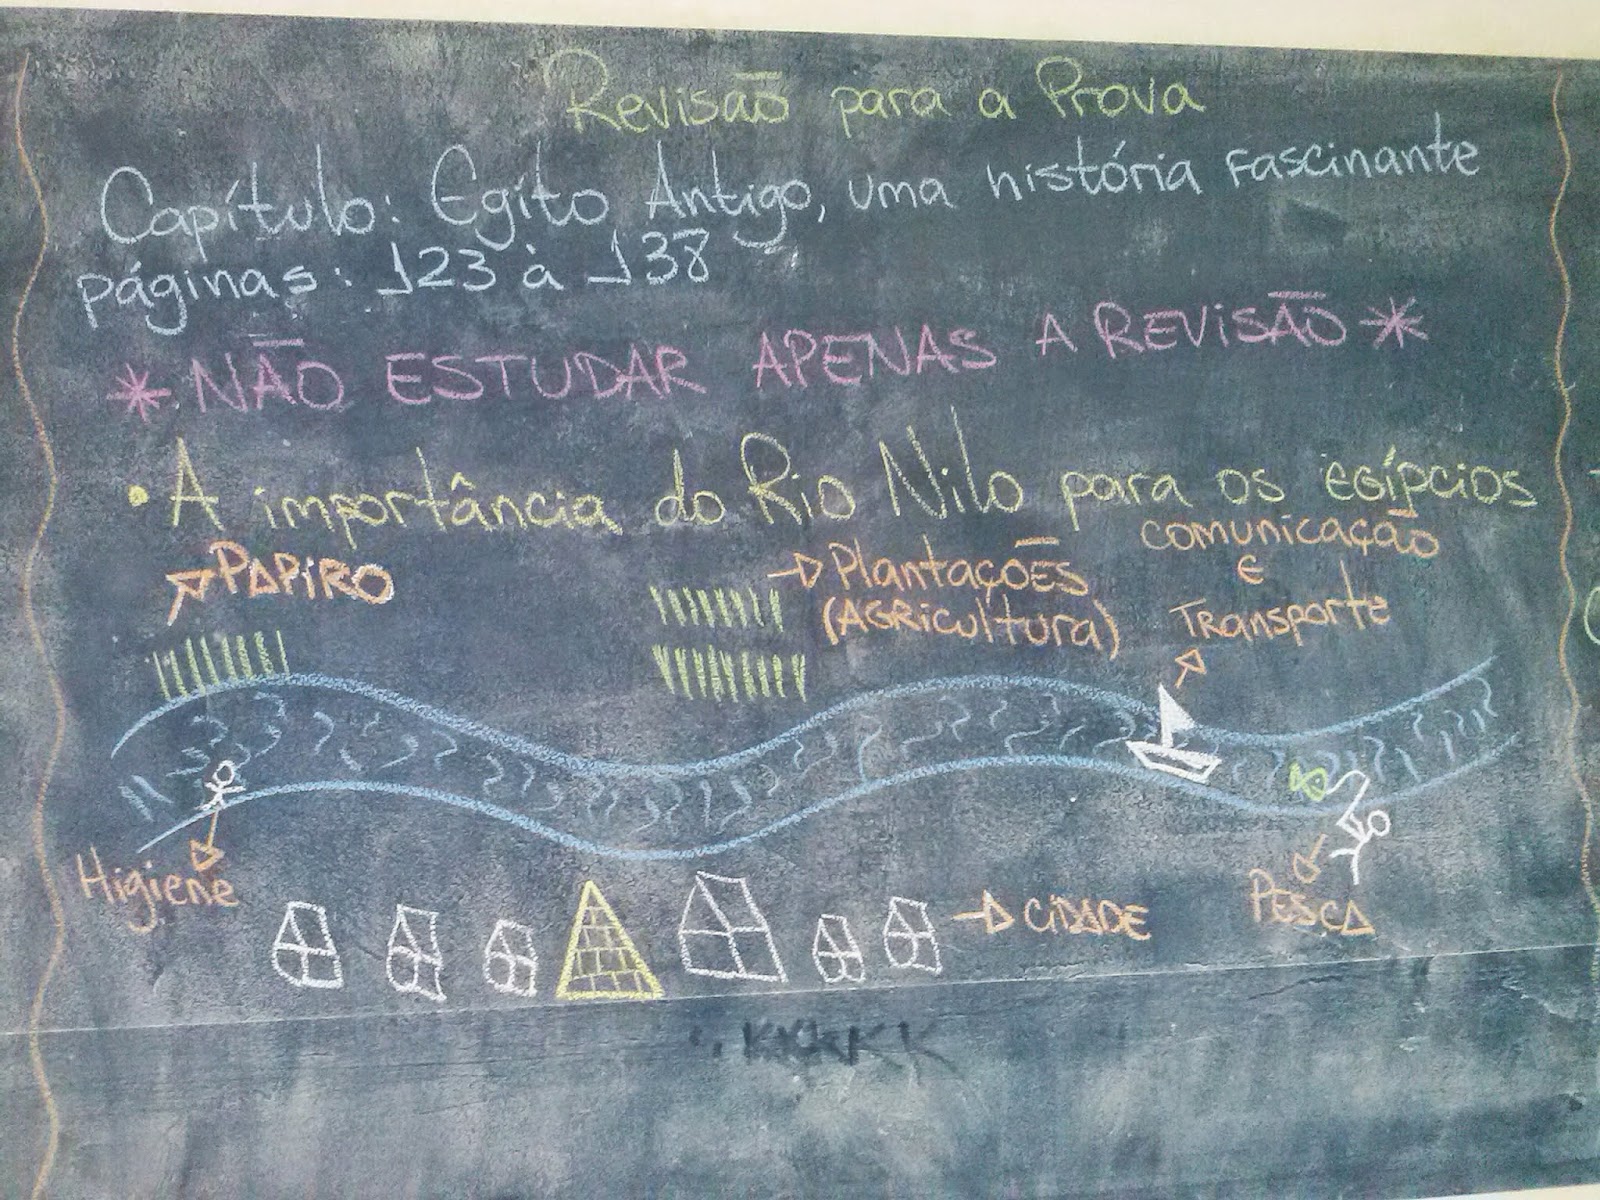 Revisão para a Prova
Capítulo: Egito Antigo, uma história fascinante
páginas: 123 à 138
* NÃO ESTUDAR APENAS A REVISÃO *
• A importância do Rio Nilo para os egípcios
PAPIRO
Plantações
(Agricultura)
comunicação
e
Transporte
Higiene
CIDADE
PESCA
KKKKK